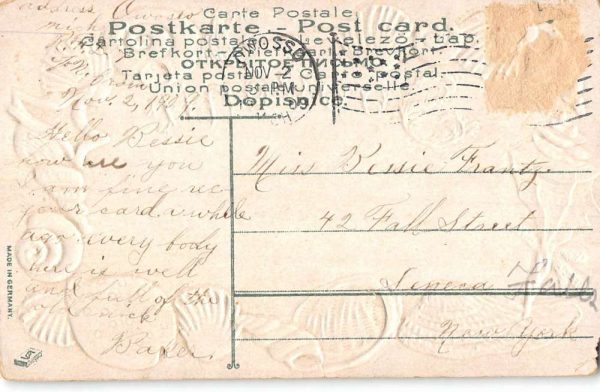 Carte Postale.
Postkarte. Post card.
Cartolina postale. Levelező-Lap.
Brefkort. Briefkaart. Brevkort.
ОТКРЫТОЕ ПИСЬМО.
Tarjeta postal.
Union postale universelle.
Dopisnice.
OWOSSO
NOV 2
PM
MICH
address Owosso
mich
Nov. 2, 1909.
Hello Bessie
how are you
I am fine rec
your card a while
ago. every body
here is well
and full of the
old nick
Baker.
Miss Bessie Frantz.
42 Fall Street
Seneca Falls
New York
MADE IN GERMANY.